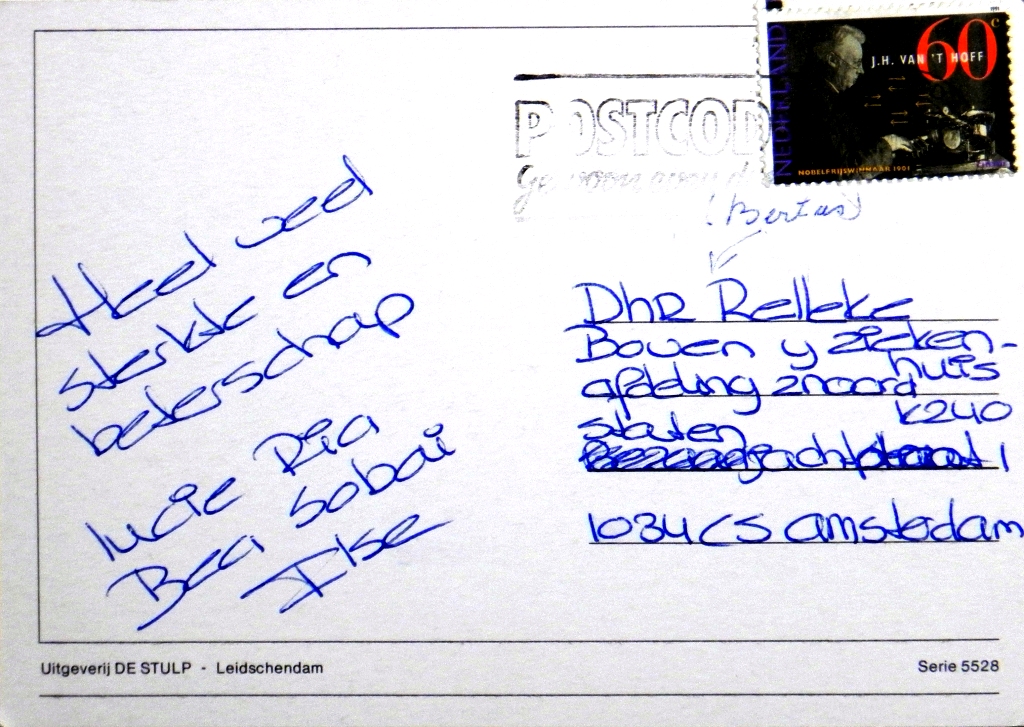 POSTCOD
Gewoon
NEDERLAND
1991
60c
J.H. VAN 'T HOFF
NOBELPRIJSWINNAAR 1901
Heel veel
sterkte en
beterschap
Lucie Ria
Bea sobai
Ilse
(Bertus)
Dhr Relleke
Boven y zieken-
huis
afdeling 2noord
K240
staten
jachtstraat 1
1034 CS Amsterdam
Uitgeverij DE STULP - Leidschendam
Serie 5528